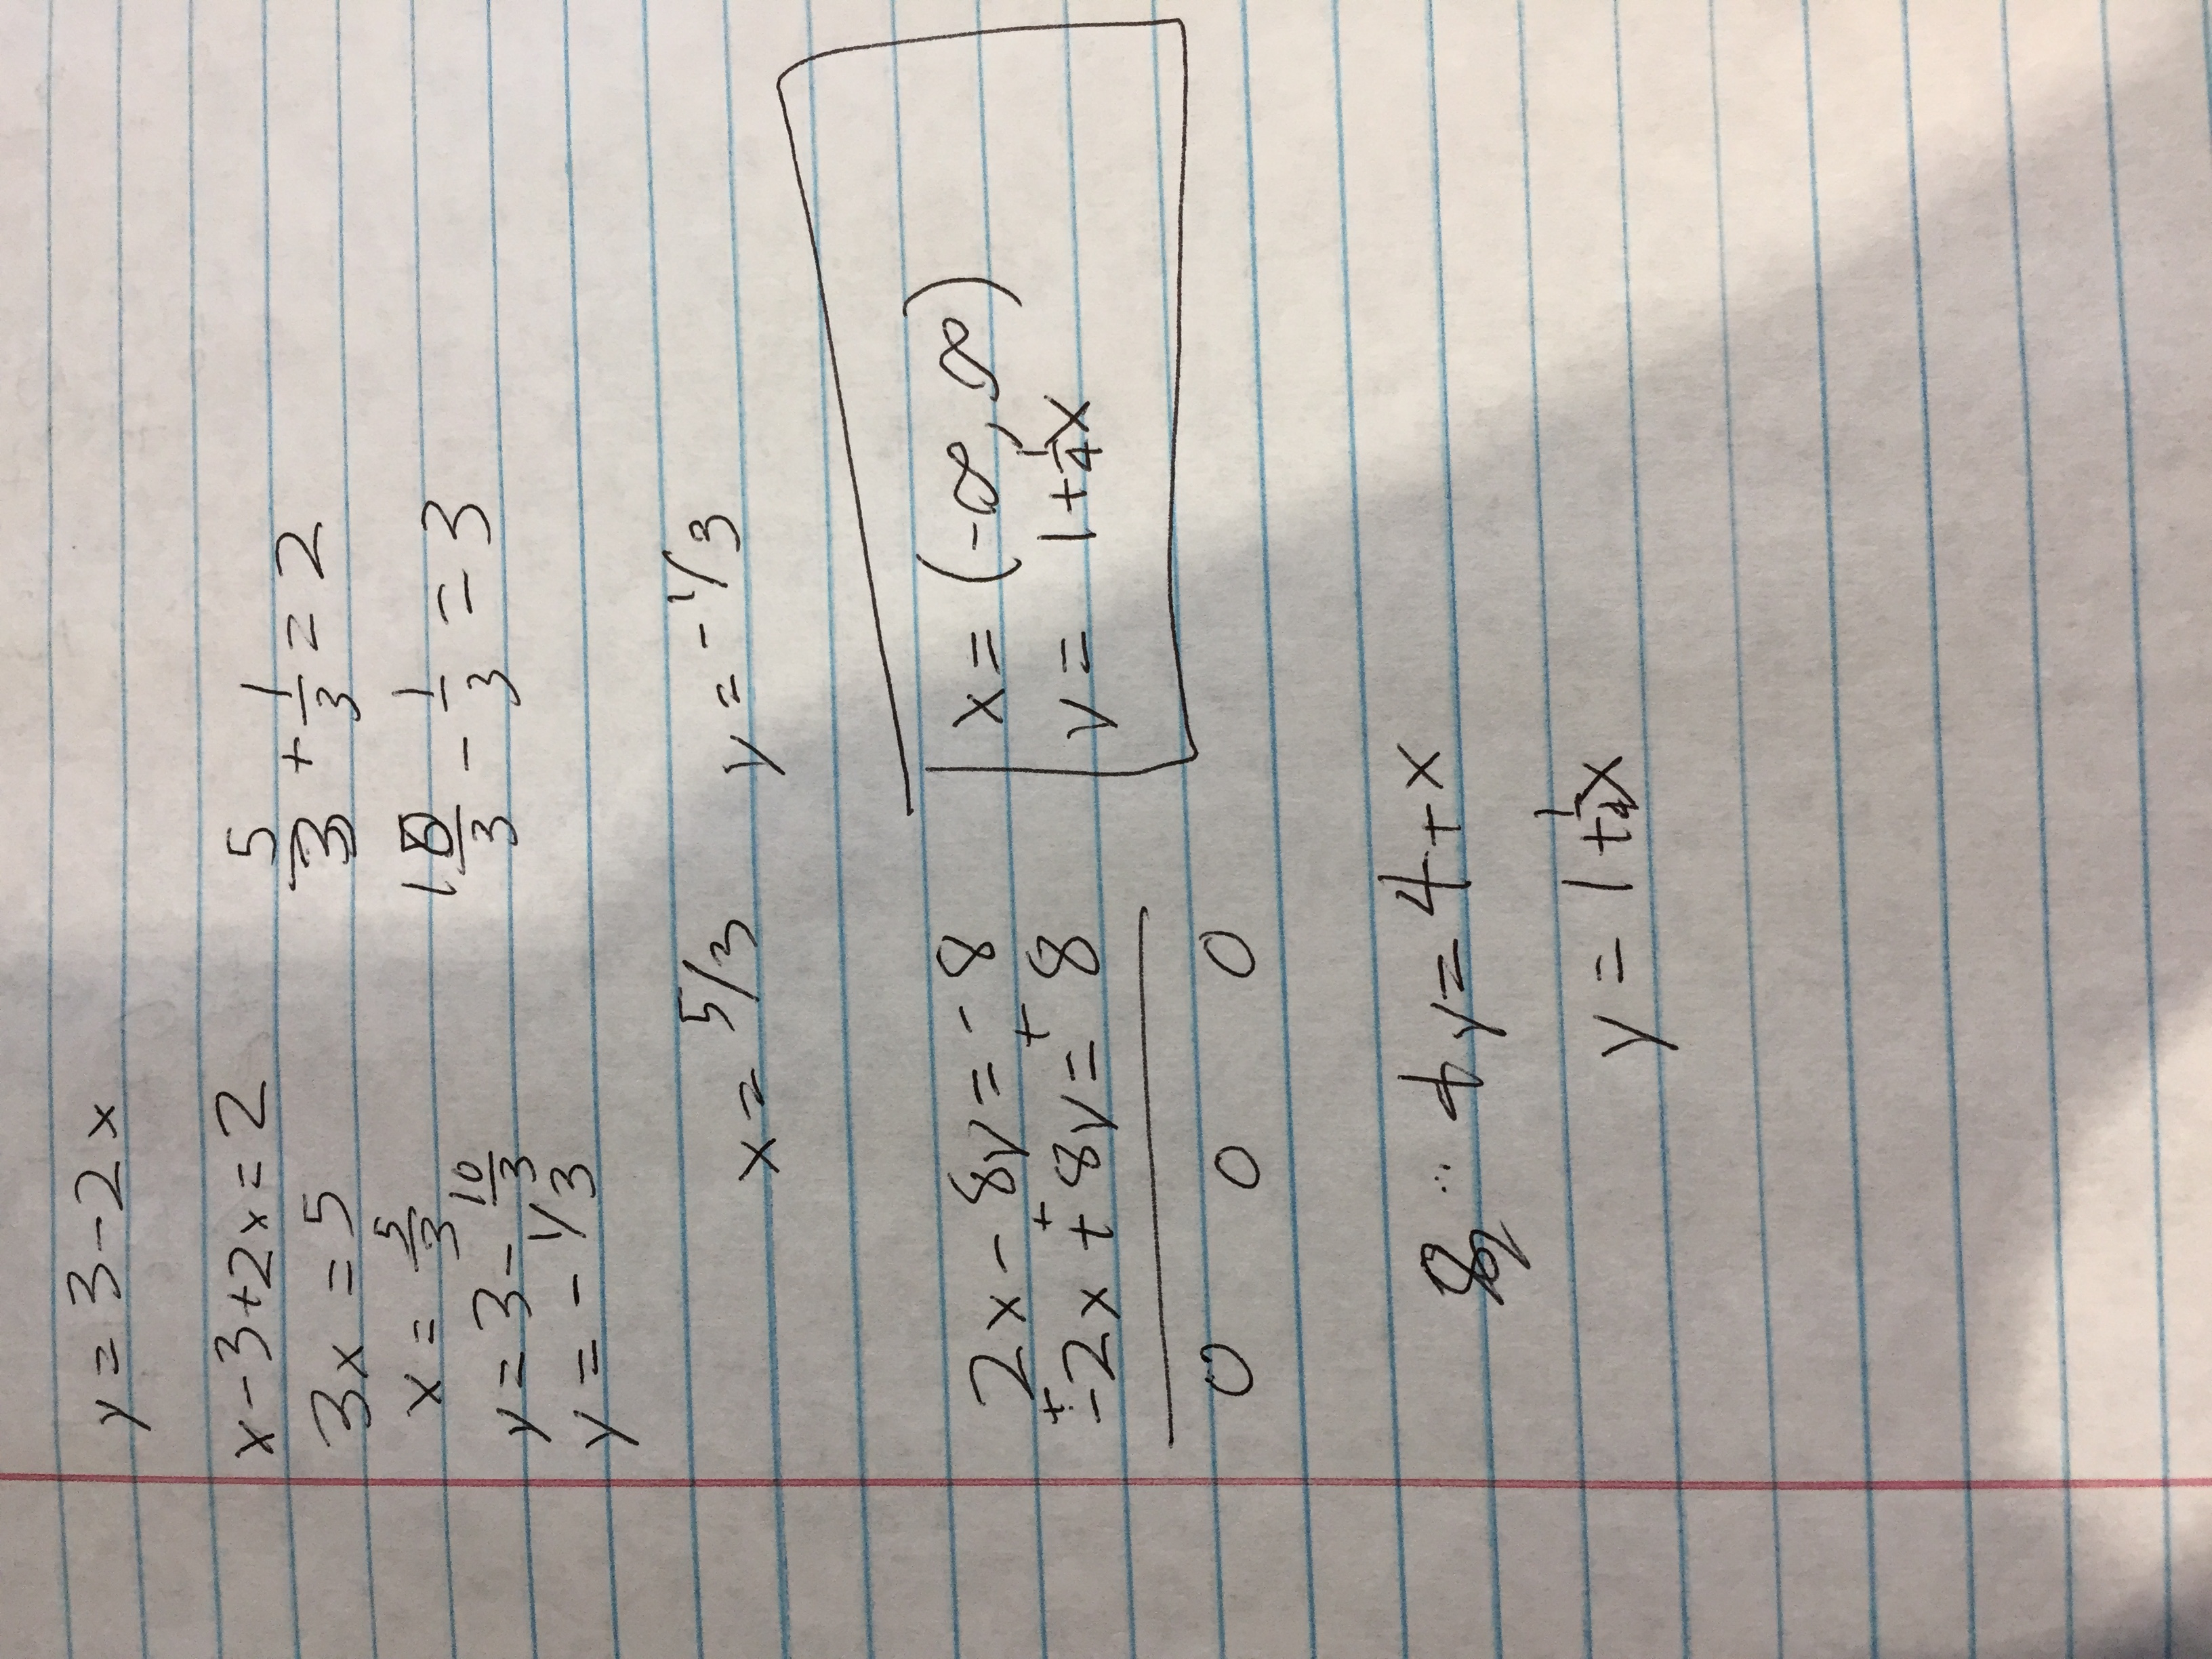 y = 3 - 2x
x - 3 + 2x = 2
3x = 5
x = 5/3
y = 3 - 10/3
y = - 1/3
5/3 + 1/3 = 2
10/3 - 1/3 = 3
x = 5/3 y = - 1/3
2x - 8y = - 8
+ + +
- 2x + 8y = 8
0 0 0
x = (-∞, ∞)
y = 1 + 1/4 x
y = 4 + x
y = 1 + 1/4 x